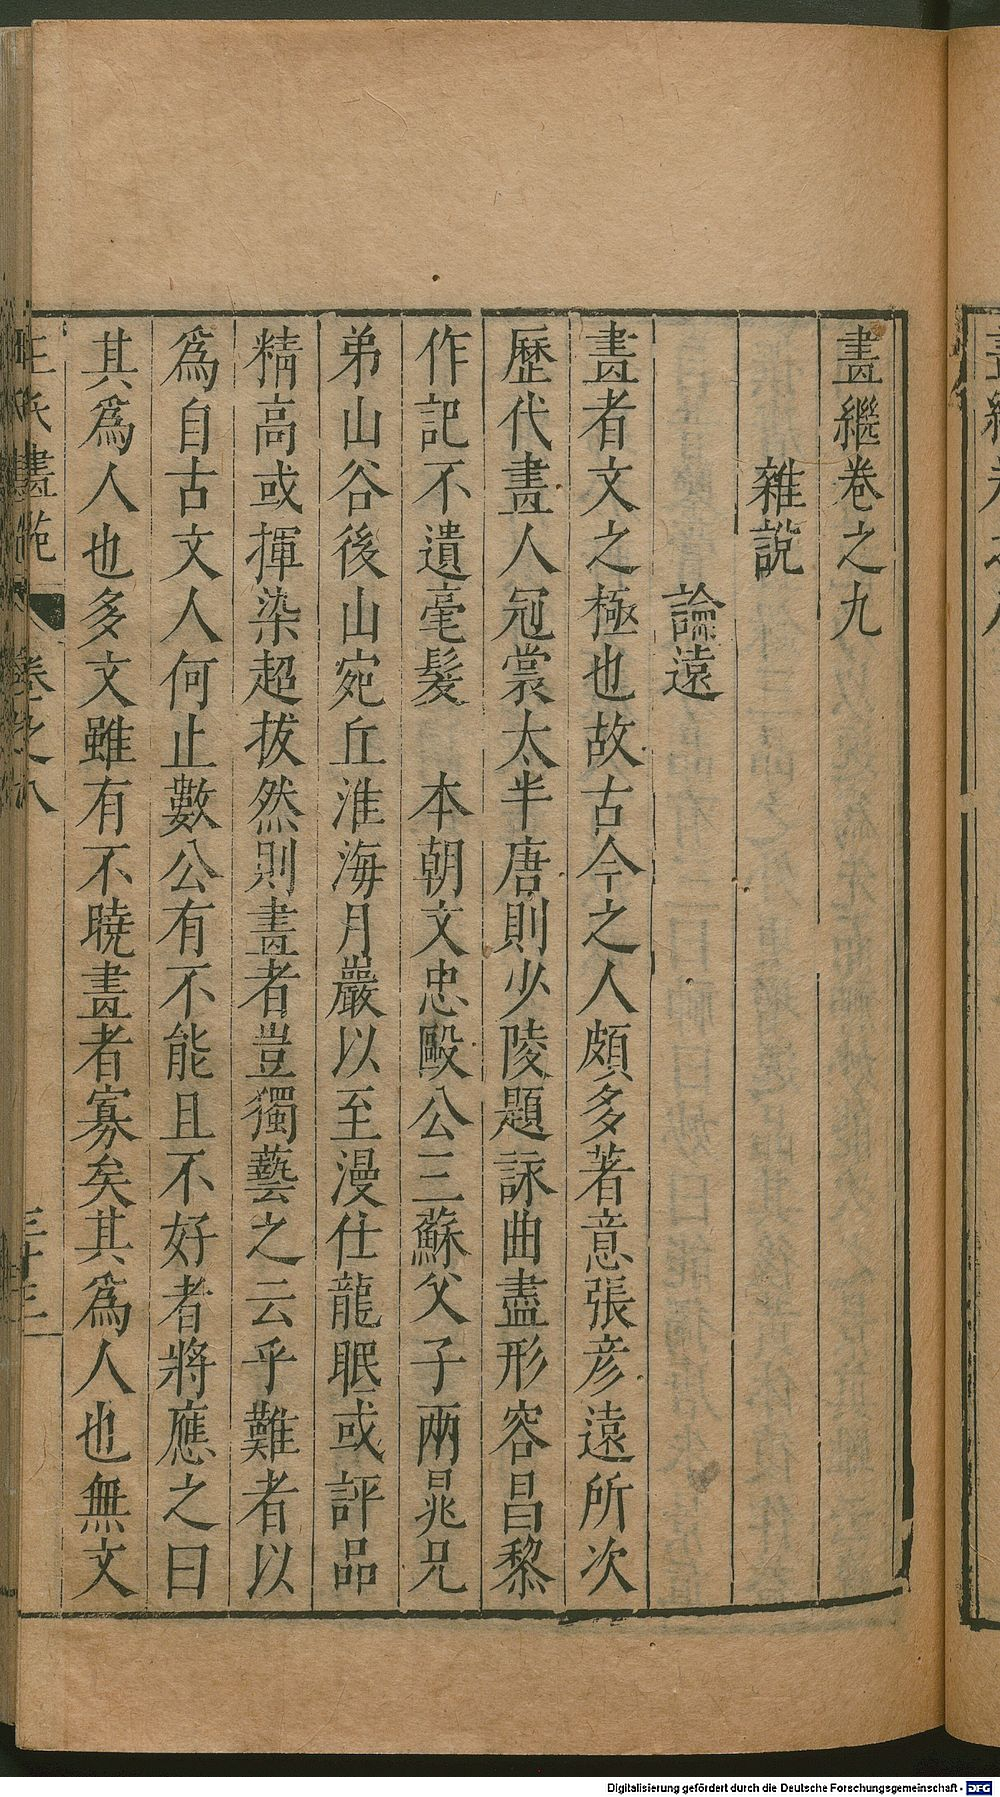 畫繼卷之九
雜說
論遠
畫者文之極也故古今之人頗多著意張彦遠所次
歷代畫人冠裳太半唐則少陵題詠曲盡形容昌黎
作記不遺毫髮　本朝文忠歐公三蘇父子兩晁兄
弟山谷後山宛丘淮海月巖以至漫仕龍眠或評品
精高或揮染超拔然則畫者豈獨藝之云乎難者以
為自古文人何止數公有不能且不好者將應之曰
其為人也多文雖有不曉畫者寡矣其為人也無文
王氏畫苑
卷之八
三十三
Digitalisierung gefördert durch die Deutsche Forschungsgemeinschaft - DFG